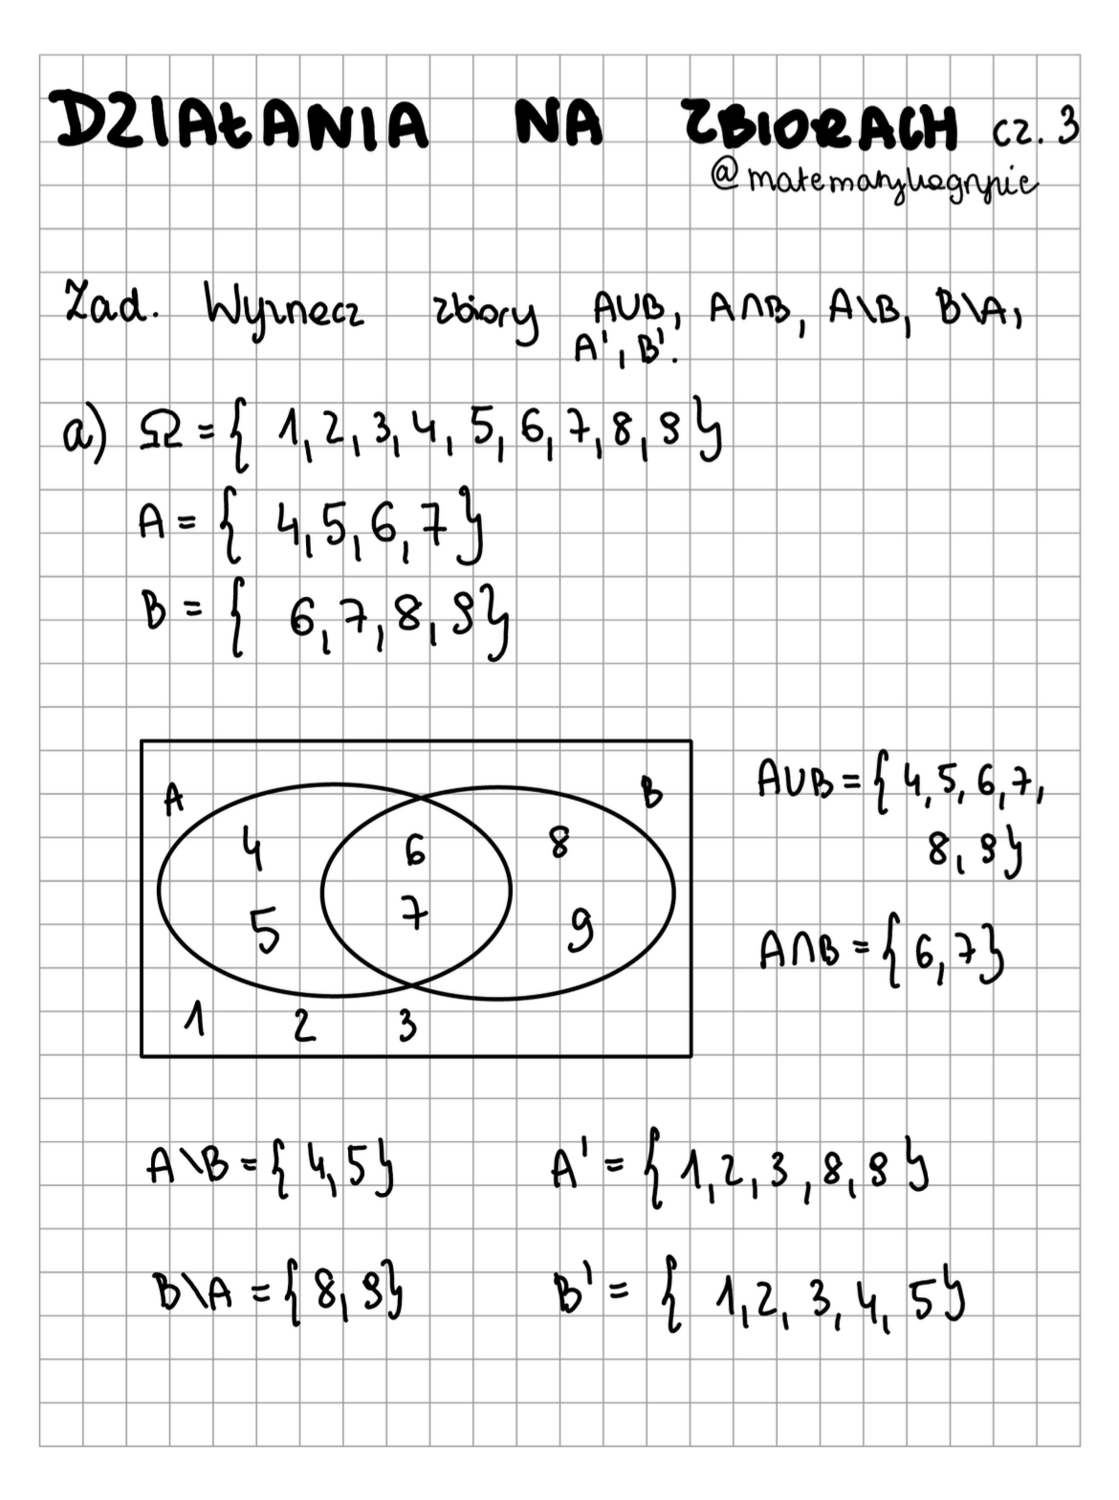 DZIAŁANIA NA ZBIORACH cz. 3
@matematykagryzie
Zad. Wyznacz zbiory A∪B, A∩B, A\B, B\A,
A', B'.
a) Ω = { 1, 2, 3, 4, 5, 6, 7, 8, 9 }
A = { 4, 5, 6, 7 }
B = { 6, 7, 8, 9 }
A B
4 6 8
5 7 9
1 2 3
A∪B = { 4, 5, 6, 7,
8, 9 }
A∩B = { 6, 7 }
A\B = { 4, 5 } A' = { 1, 2, 3, 8, 9 }
B\A = { 8, 9 } B' = { 1, 2, 3, 4, 5 }